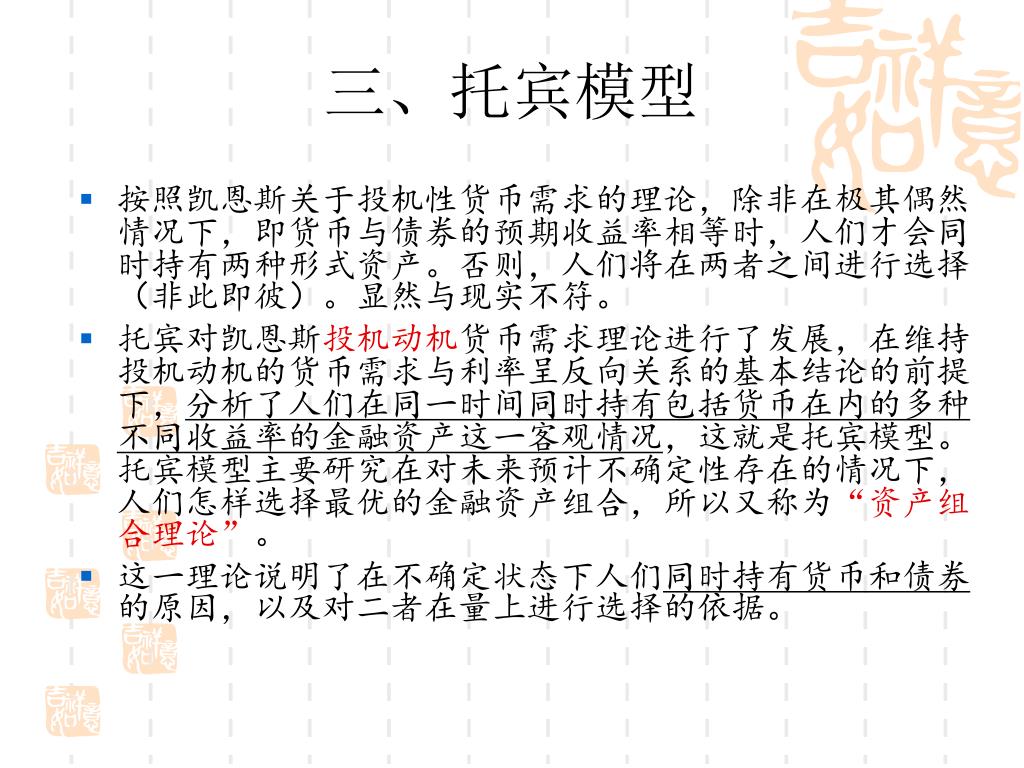 吉祥如意
三、托宾模型
按照凯恩斯关于投机性货币需求的理论，除非在极其偶然
情况下，即货币与债券的预期收益率相等时，人们才会同
时持有两种形式资产。否则，人们将在两者之间进行选择
（非此即彼）。显然与现实不符。
托宾对凯恩斯投机动机货币需求理论进行了发展，在维持
投机动机的货币需求与利率呈反向关系的基本结论的前提
下，分析了人们在同一时间同时持有包括货币在内的多种
不同收益率的金融资产这一客观情况，这就是托宾模型。
托宾模型主要研究在对未来预计不确定性存在的情况下，
人们怎样选择最优的金融资产组合，所以又称为“资产组
合理论”。
这一理论说明了在不确定状态下人们同时持有货币和债券
的原因，以及对二者在量上进行选择的依据。
吉祥如意
吉祥如意
吉祥如意
吉祥如意
吉祥如意
吉祥如意